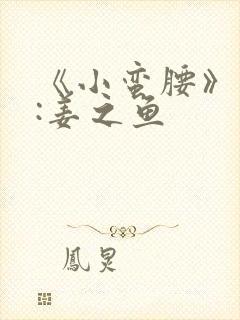 《小蛮腰》
:姜之鱼
鳳炅